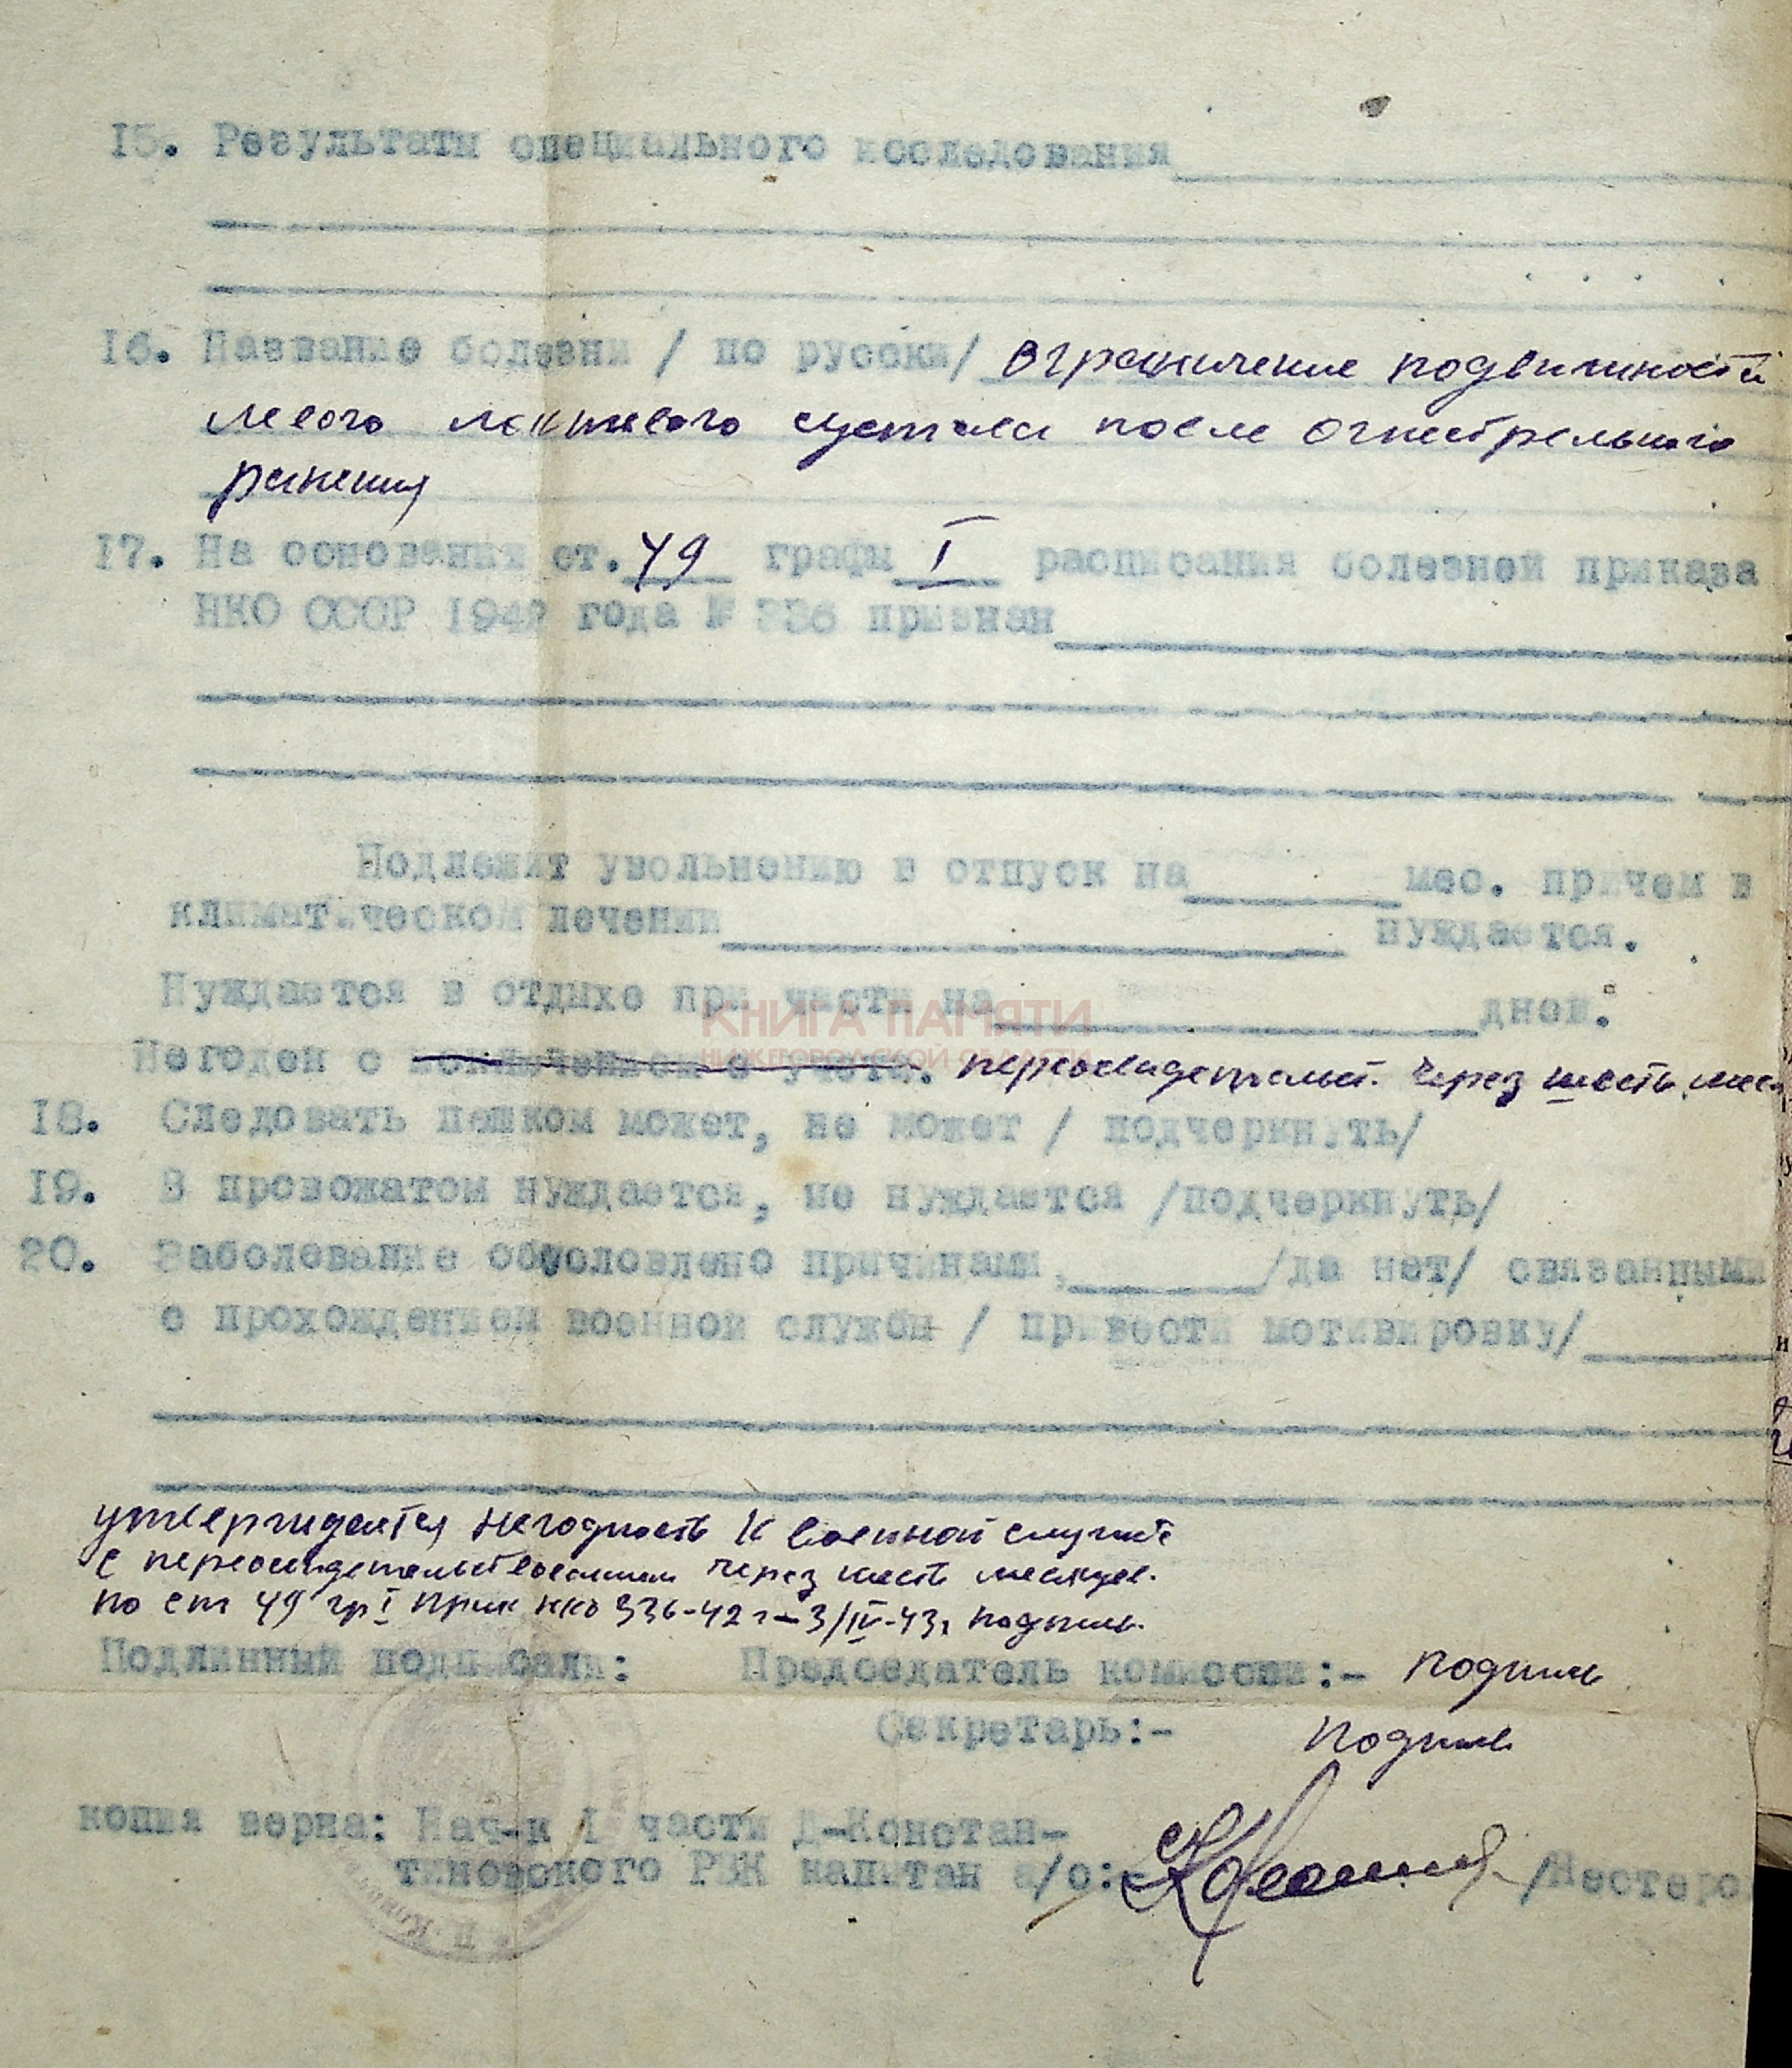 15. Результаты специального исследования
16. Название болезни / по русски/ ограничение подвижности
левого локтевого сустава после огнестрельного
ранения
17. На основании ст. 49 графы I расписания болезней приказа
НКО СССР 1942 года № 336 признан
Подлежит увольнению в отпуск на мес. причем в
климатическом лечении нуждается.
Нуждается в отдыхе при части на дней.
КНИГА ПАМЯТИ
НИЖЕГОРОДСКОЙ ОБЛАСТИ
Негоден с исключением с учета. переосвидетельст. через шесть мес.
18. Следовать пешком может, не может / подчеркнуть/
19. В провожатом нуждается, не нуждается /подчеркнуть/
20. Заболевание обусловлено причинами, /да нет/ связанными
с прохождением военной службы / привести мотивировку/
утверждается негодность к военной службе
с переосвидетельствованием через шесть месяцев.
по ст 49 гр I Прик НКО 336-42 г - 3/IV-43г подпись.
Подлинный подписали: Председатель комиссии:- подпись
Секретарь:- подпись
копия верна: Нач-к 1 части Д-Констан-
тиновского РВК капитан а/с: /Нестеро